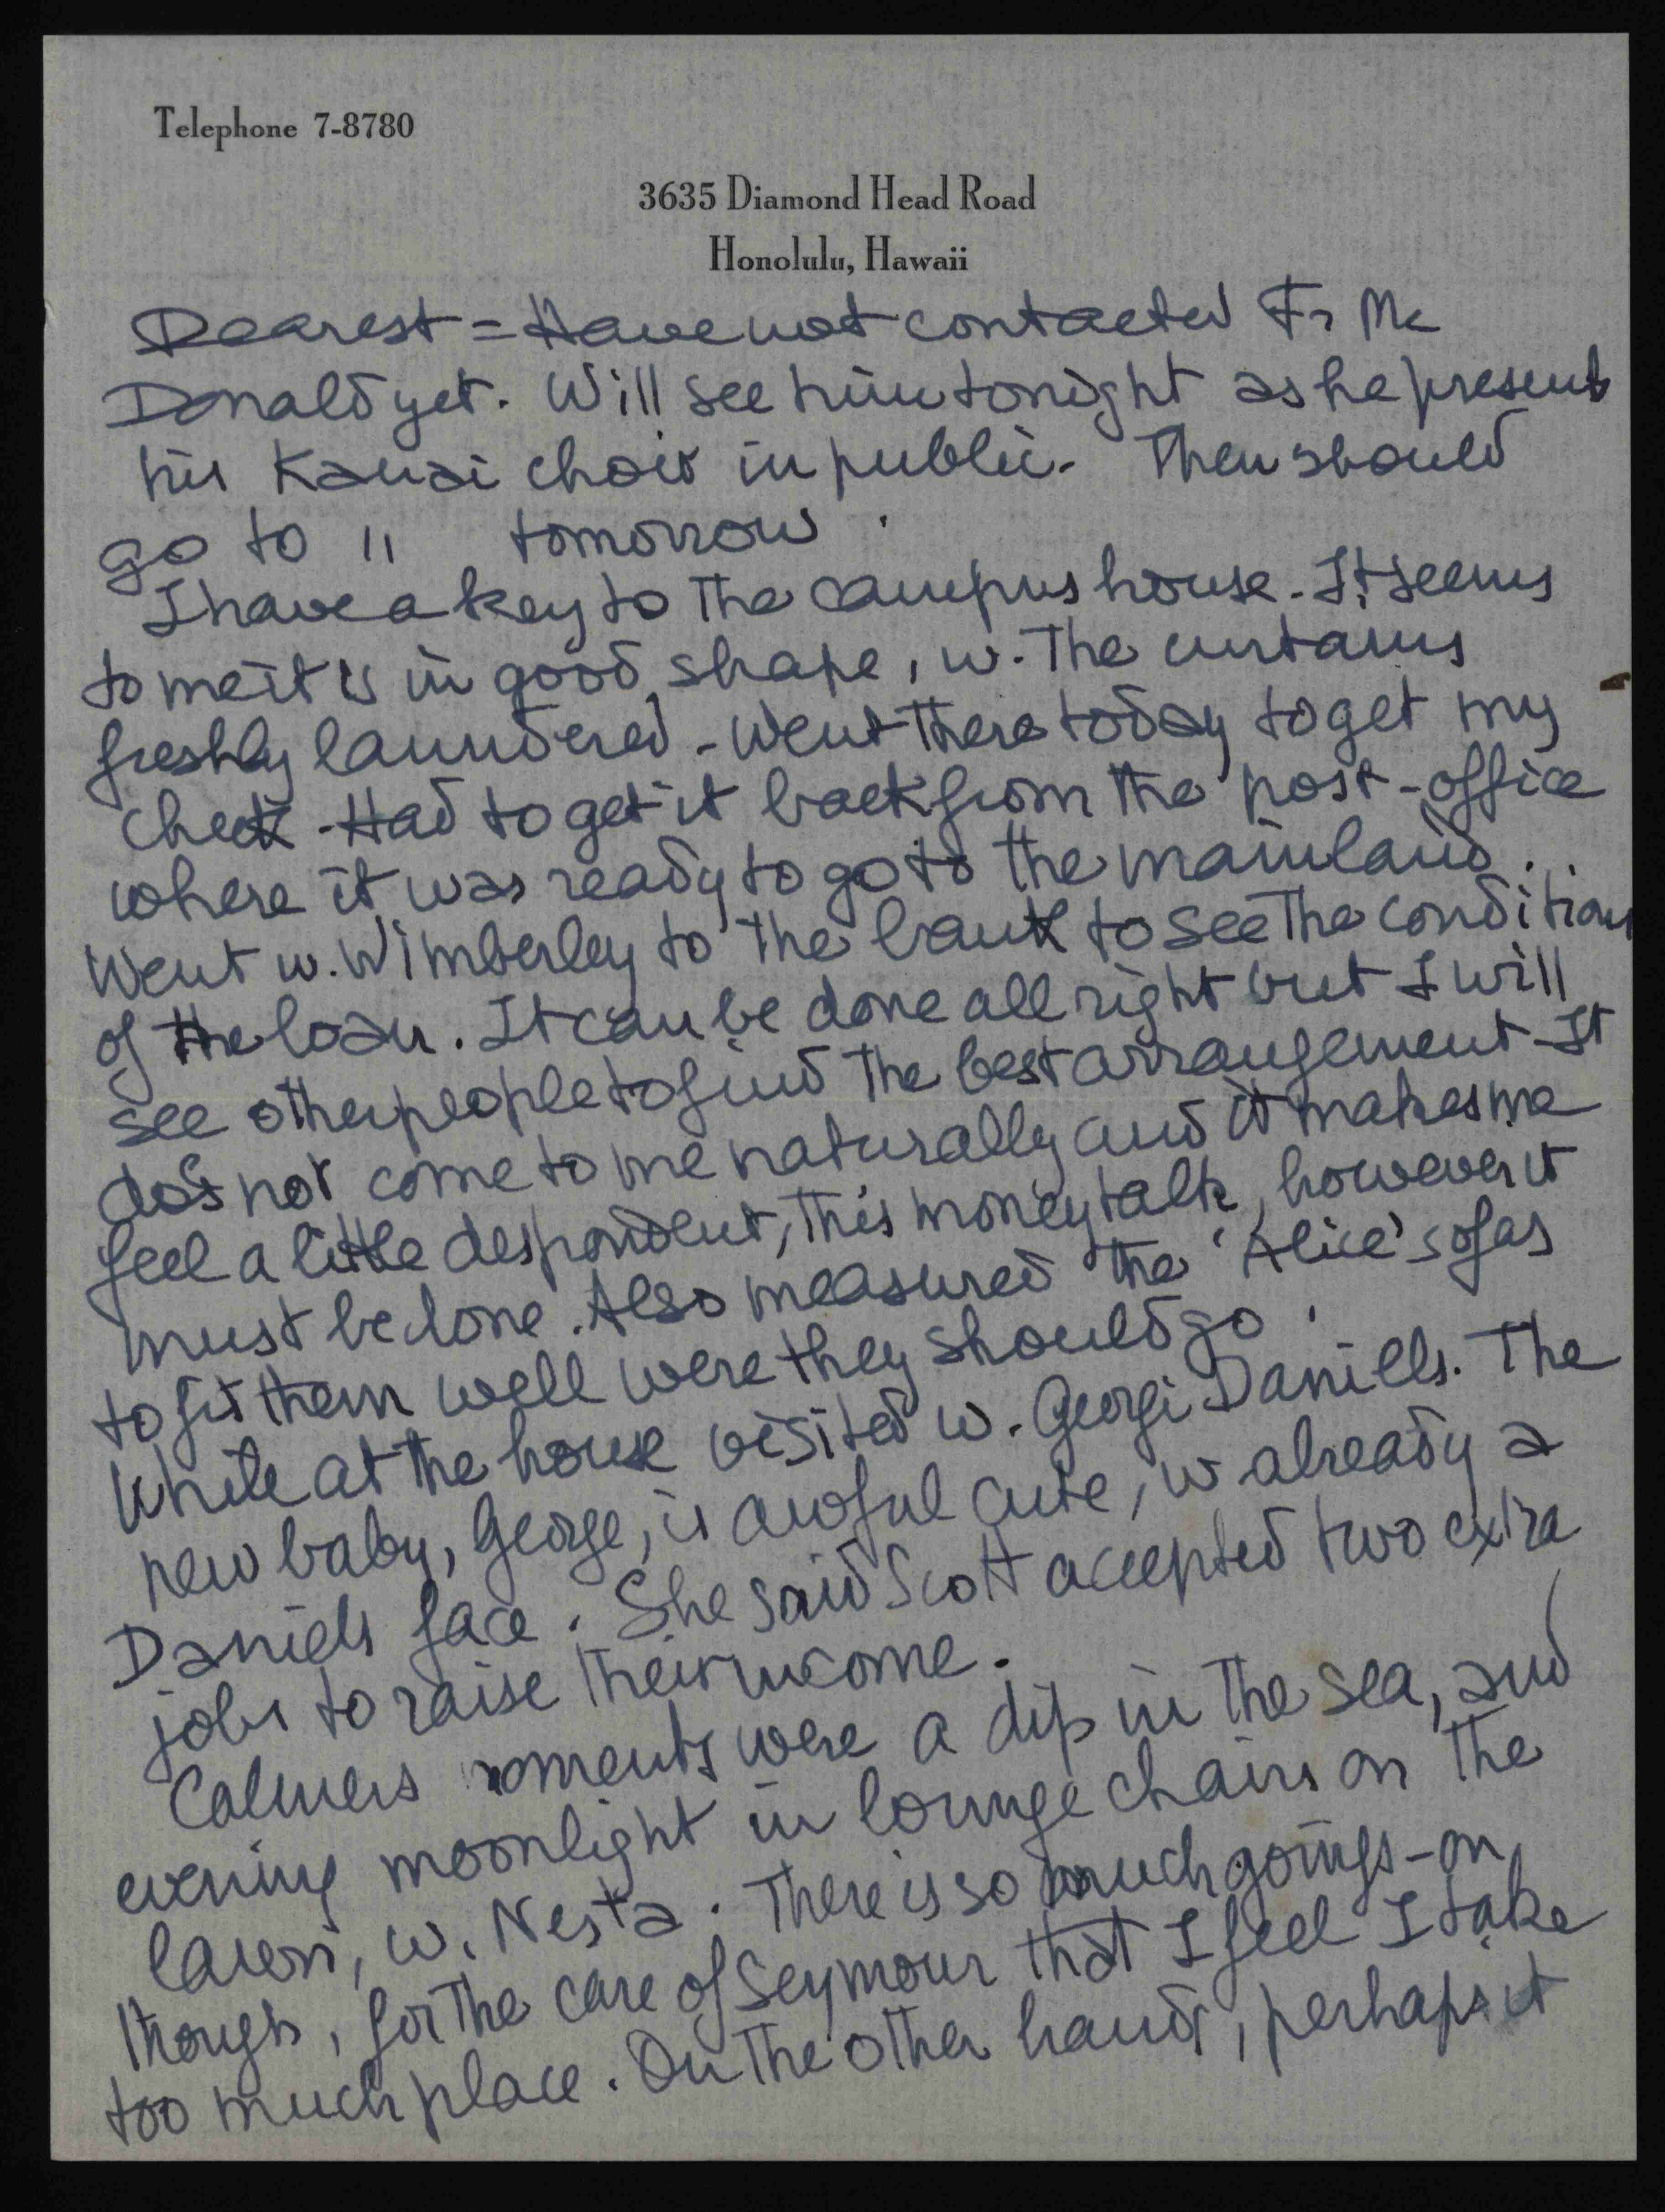 Telephone 7-8780
3635 Diamond Head Road
Honolulu, Hawaii
Dearest = Have not contacted Fr Mc
Donald yet. Will see him tonight as he presents
his Kauai choir in public. Then should
go to " tomorrow.
I have a key to the campus house. It seems
to me it is in good shape, w. the curtains
freshly laundered - Went there today to get my
check - Had to get it back from the post-office
where it was ready to go to the mainland.
Went w. Wimberley to the bank to see the conditions
of the loan. It can be done all right but I will
see other people to find the best arrangement - It
does not come to me naturally and it makes me
feel a little despondent, this money talk, however it
must be done. Also measured the 'Alice' sofas
to fit them well were they should go.
While at the house visited w. Georgi Daniells. The
new baby, George, is awful cute, w already a
Daniels face. She said Scott accepted two extra
jobs to raise their income.
Calmers moments were a dip in the sea, and
evening moonlight in lounge chairs on the
lawn, w. Nesta. There is so much goings-on
though, for the care of Seymour that I feel I take
too much place. On the other hand, perhaps it